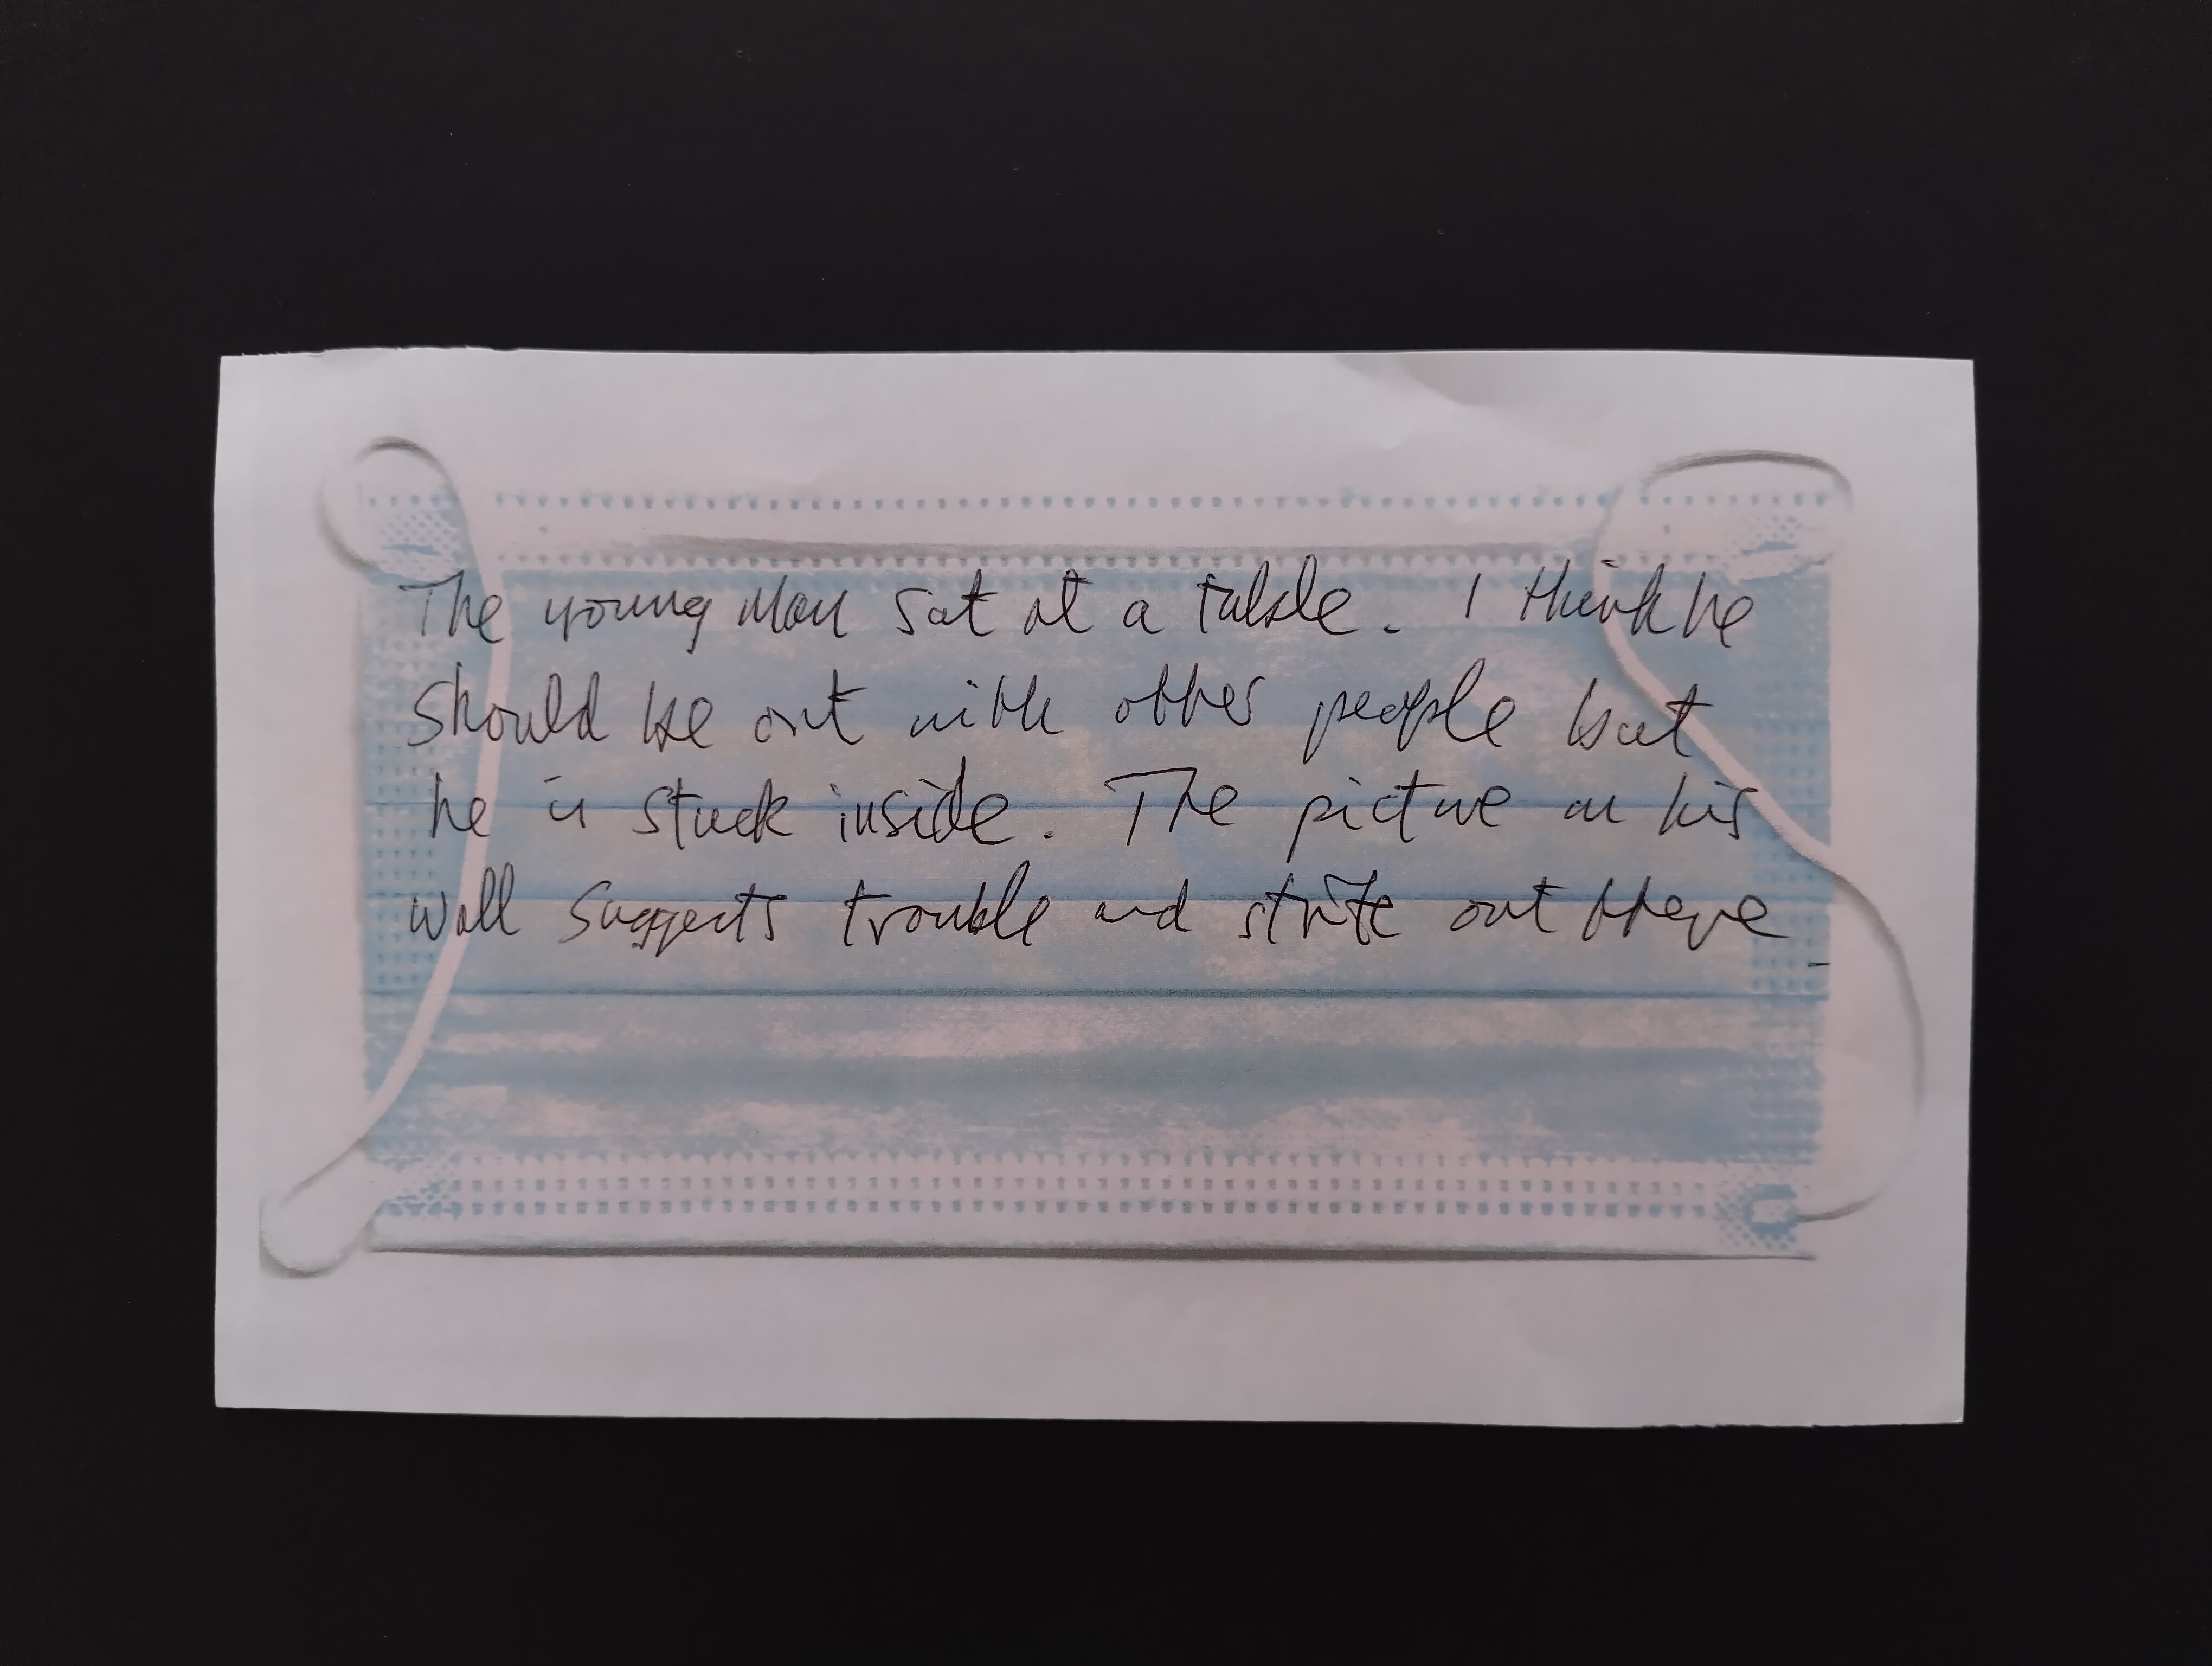 The young man sat at a table. I think he
should be out with other people but
he is stuck inside. The picture on his
wall suggests trouble and strife out there